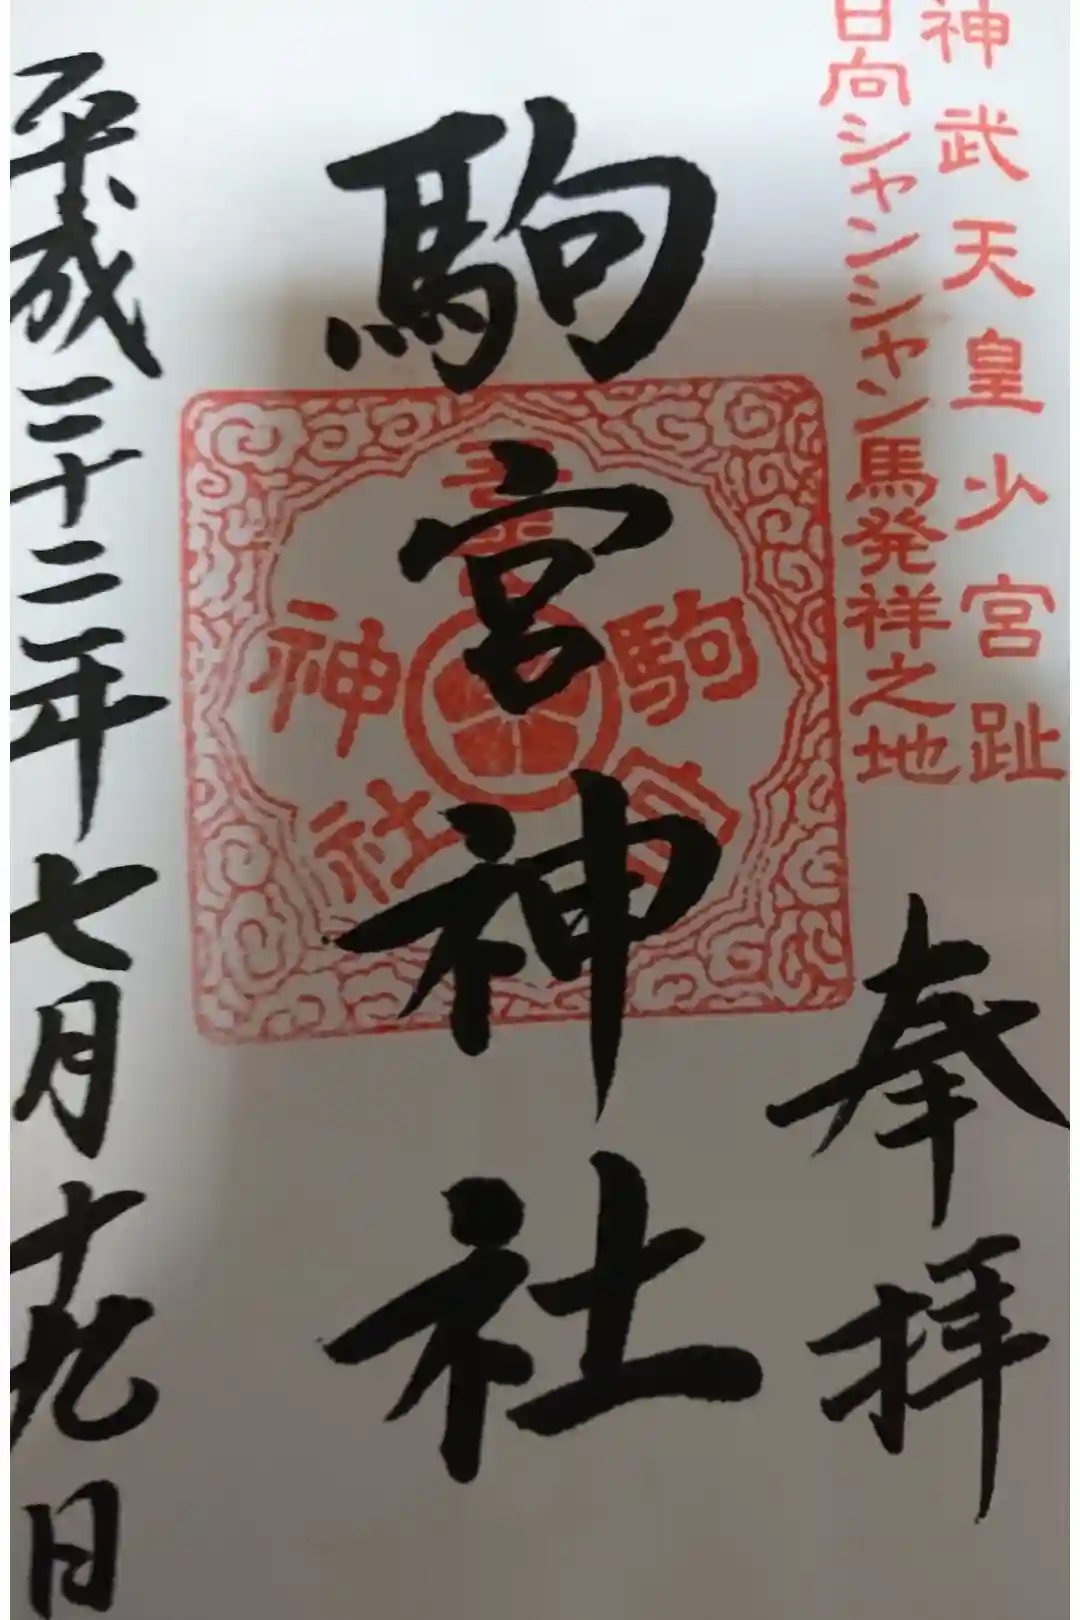 神武天皇少宮趾
日向シャンシャン馬発祥之地
奉拝
駒宮神社
駒宮神社
平成二十二年七月十九日